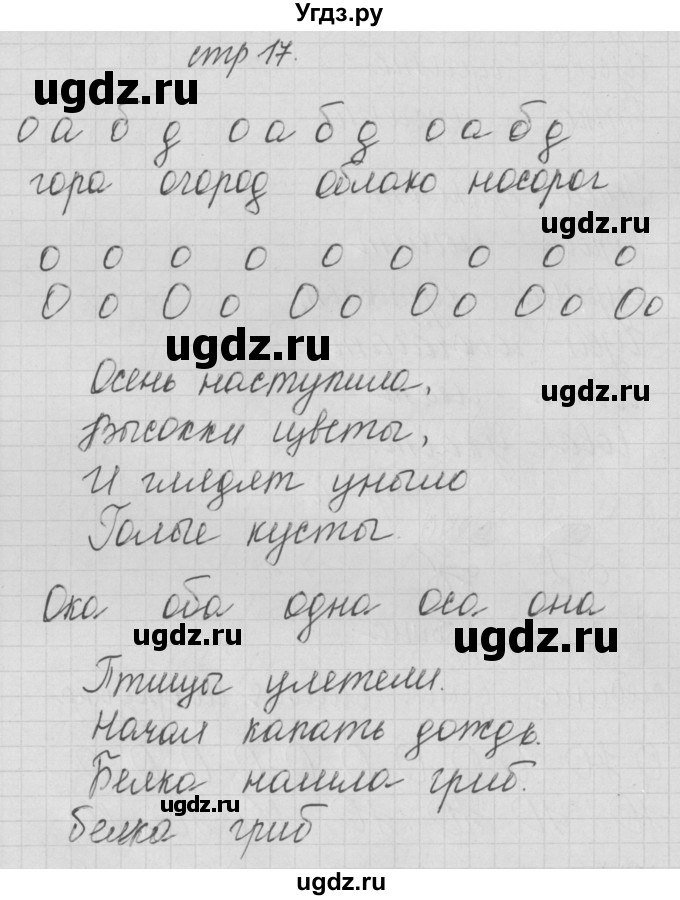 Угдз.ру
стр 17.
ugdz.ru
о а б д о а б д о а б д
гора огород облако носорог
ugdz.ru
о о о о о о о о о
О о О о О о О о О о О о
ugdz.ru
Осень наступила,
ugdz.ru
Высохки цветы,
И глядят уныло
Голые кусты.
Ока оба одна оса она
ugdz.ru
ugdz.ru
Птицы улетели.
Начал капать дождь.
Белка нашла гриб.
ugdz.ru
белка гриб
ugdz.ru